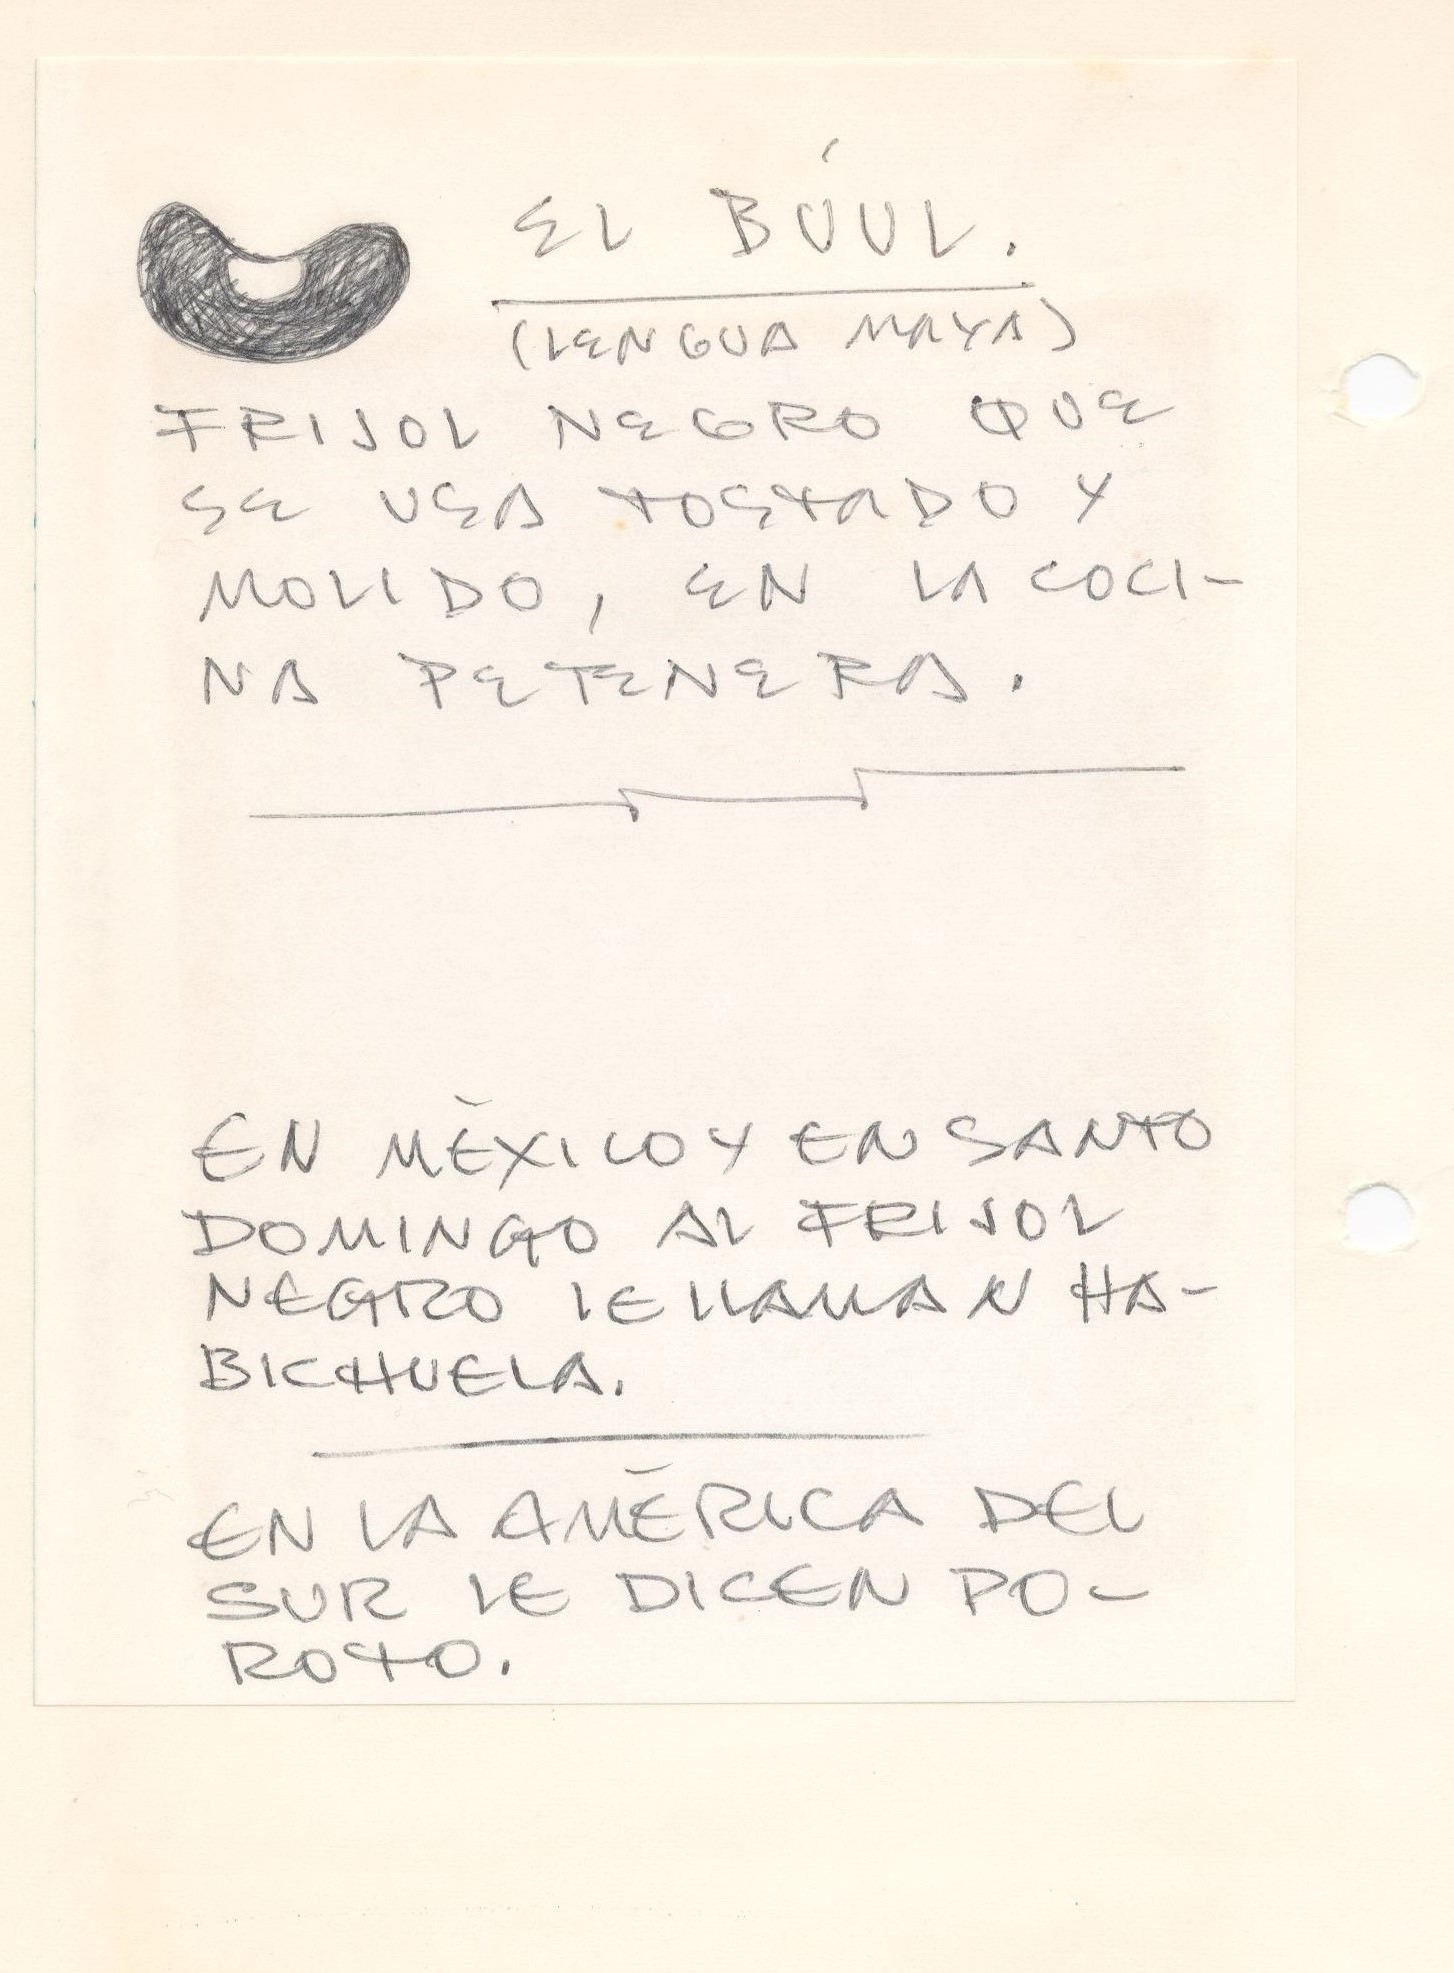 EL BÚUL.
(LENGUA MAYA)
FRIJOL NEGRO QUE
SE USA TOSTADO Y
MOLIDO, EN LA COCI-
NA PETENERA.
EN MÉXICO Y EN SANTO
DOMINGO AL FRIJOL
NEGRO LE LLAMAN HA-
BICHUELA.
EN LA AMÉRICA DEL
SUR LE DICEN PO-
ROTO.